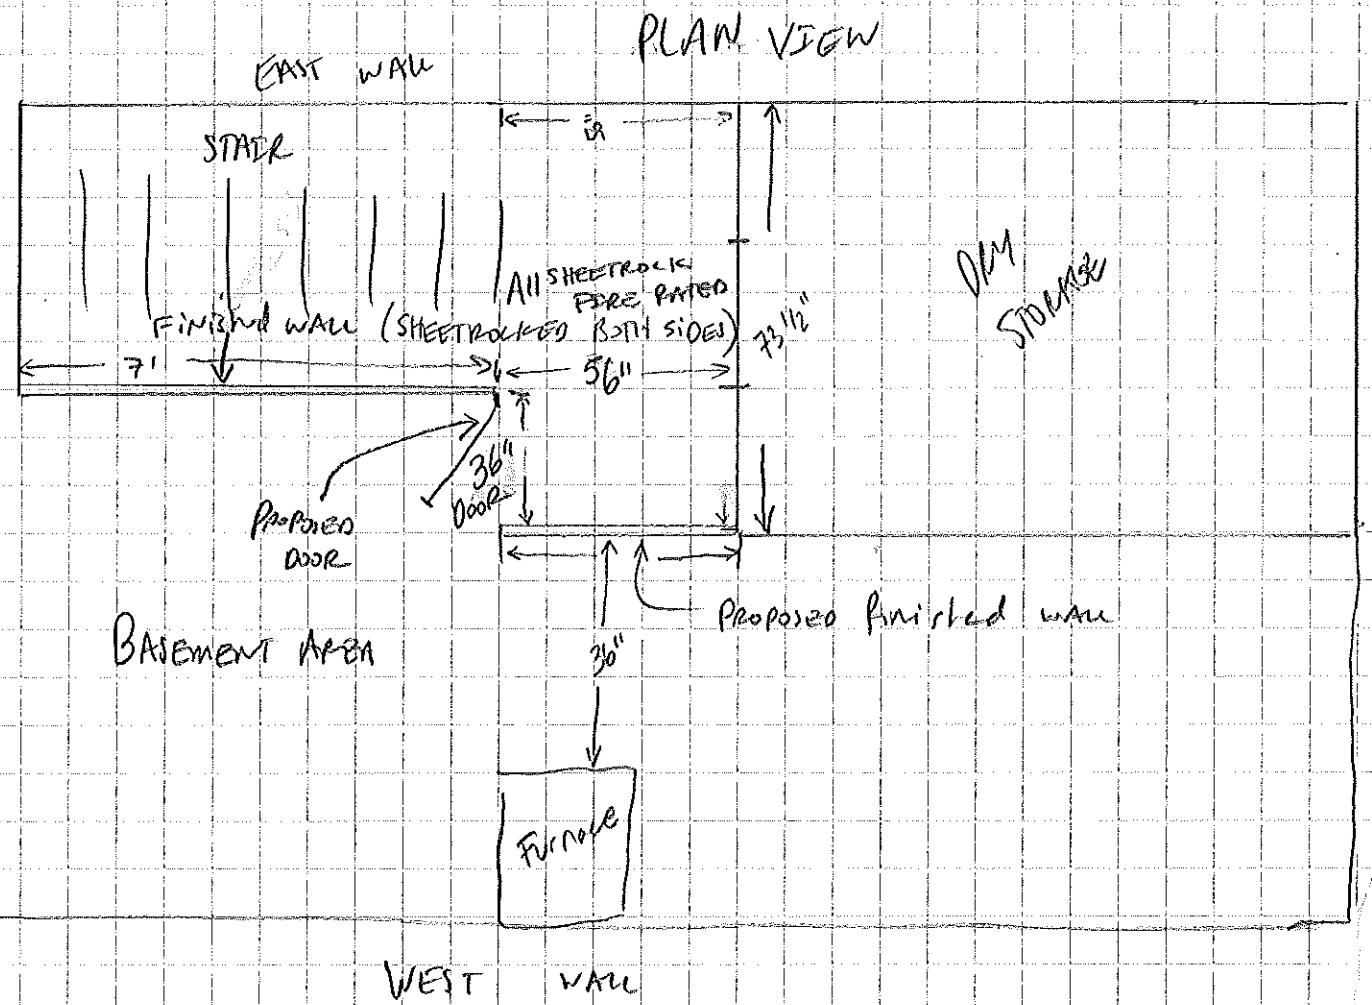 PLAN VIEW
EAST WALL
STAIR
All SHEETROCK
FIRE RATED
FINISHED WALL (SHEETROCKED BOTH SIDES)
73 1/2"
DRY
STORAGE
7'
56"
36"
DOOR
PROPOSED
DOOR
PROPOSED finished WALL
BASEMENT AREA
36"
Furnace
WEST WALL